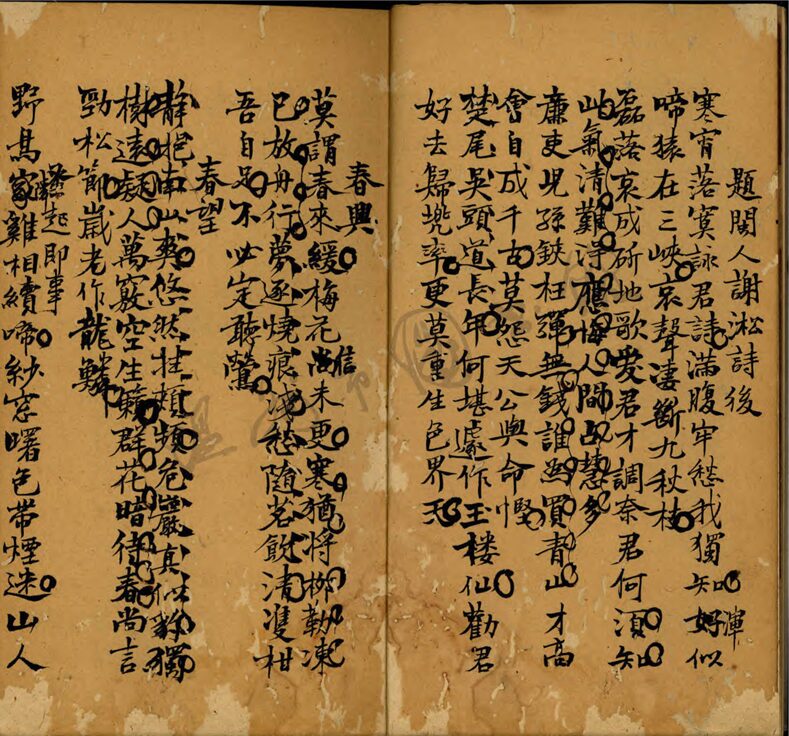 題閩人謝淞詩後
寒宵落寞詠君詩滿腹牢愁我獨知渾好似
啼猿在三峽哀聲淒斷九秋枝
磊落哀成斫地歌愛君才調奈君何須知
此氣清難得應悔人間占慧多
廉吏兒孫鉄枉彈無錢誰為買青山才高
會自成千古莫怨天公與命慳
楚尾吳頭道長年何堪遽作玉樓仙勸君
好去歸兠率更莫重生色界天
春興
莫謂春來緩梅花信尚未更寒猶將柳勒凍
已放舟行夢逐燒痕淺愁隨老餀清雙柑
吾自足不必定聽鶯
春望
靜挹南山爽悠然拄頰頻危巖真似豹獨
樹遠疑人萬竅空生籟群花暗待春尚言
勁松節歲老作龍鱗
晨起即事
野鳥家雞相續啼紗窓曙色帶煙迷山人